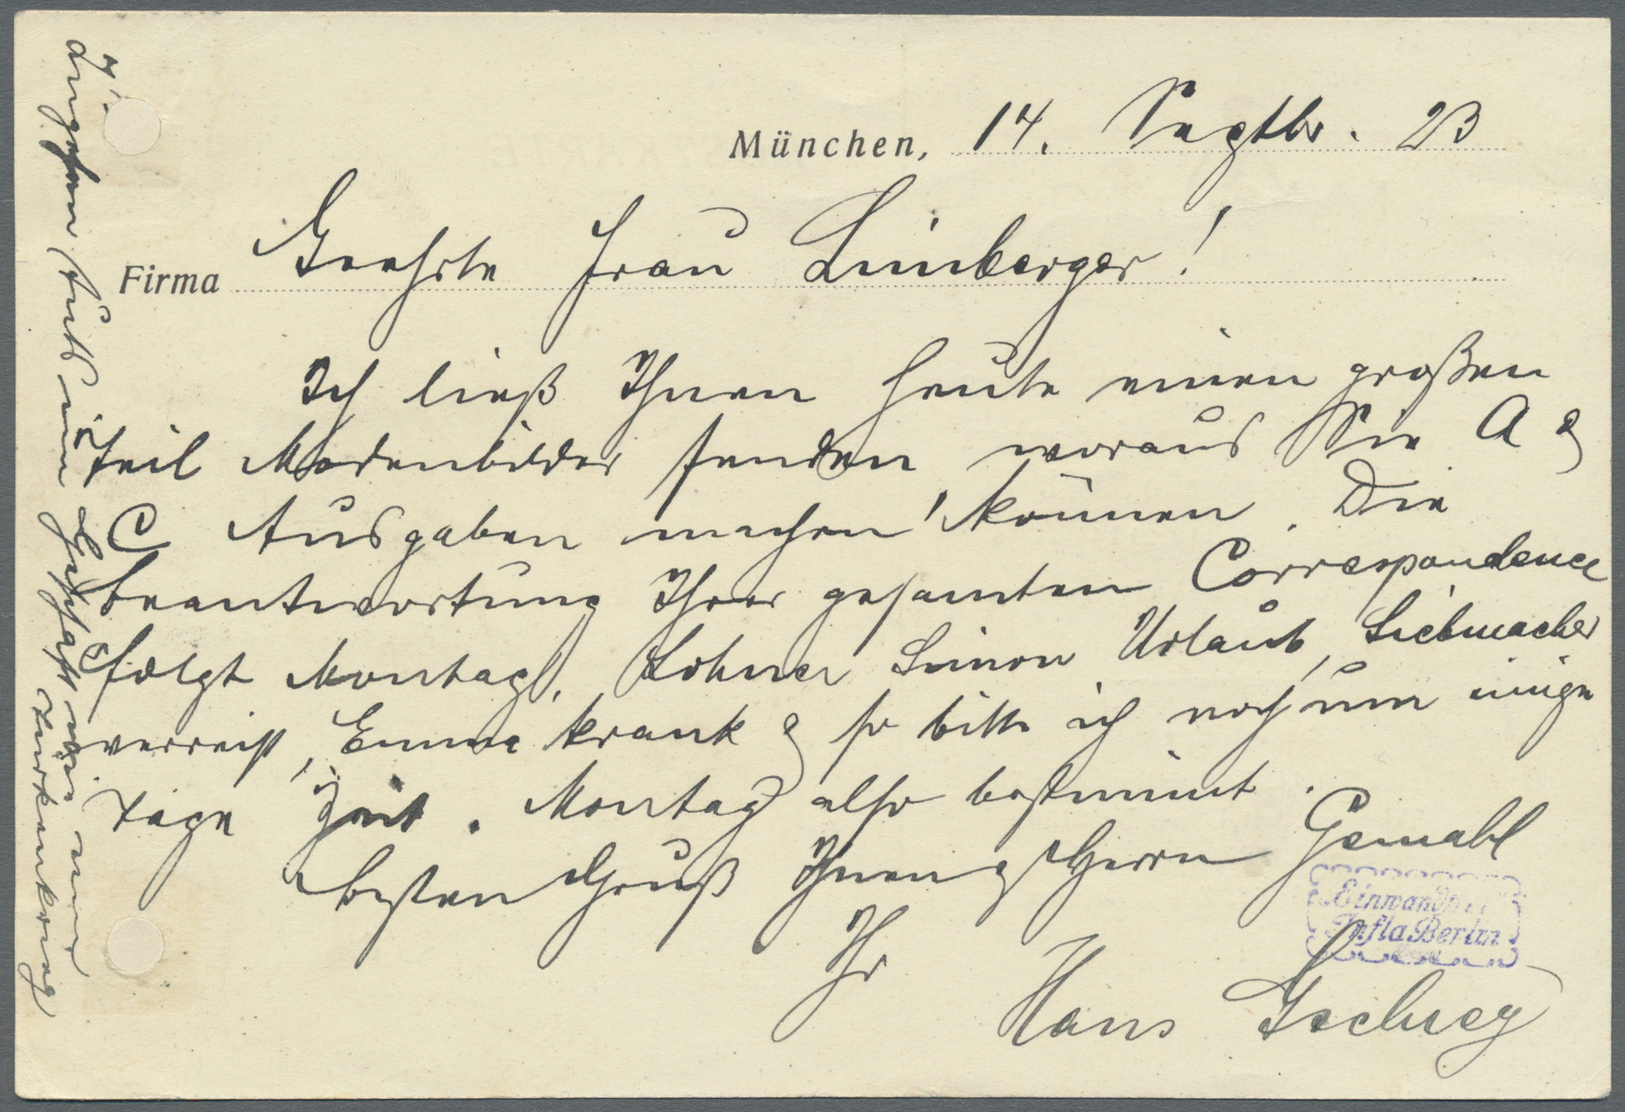 München, 14. Septbr. 23
Firma Geehrte Frau Limberger!
Ich ließ Ihnen heute einen großen
teil Modenbilder senden, woraus Sie A &
C Ausgaben machen können. Die
beantwortung Ihrer gesamten Correspondence
folgt Montag. Lohner Simon Urlaub, Siebmacher
verreist, Emma krank & so bitte ich noch um einige
tage Zeit. Montag also bestimmt.
besten Gruß Ihnen & Herrn Gemahl
Ihr
Hans
Einwandfrei
Infla Berlin
im Geschäft wie